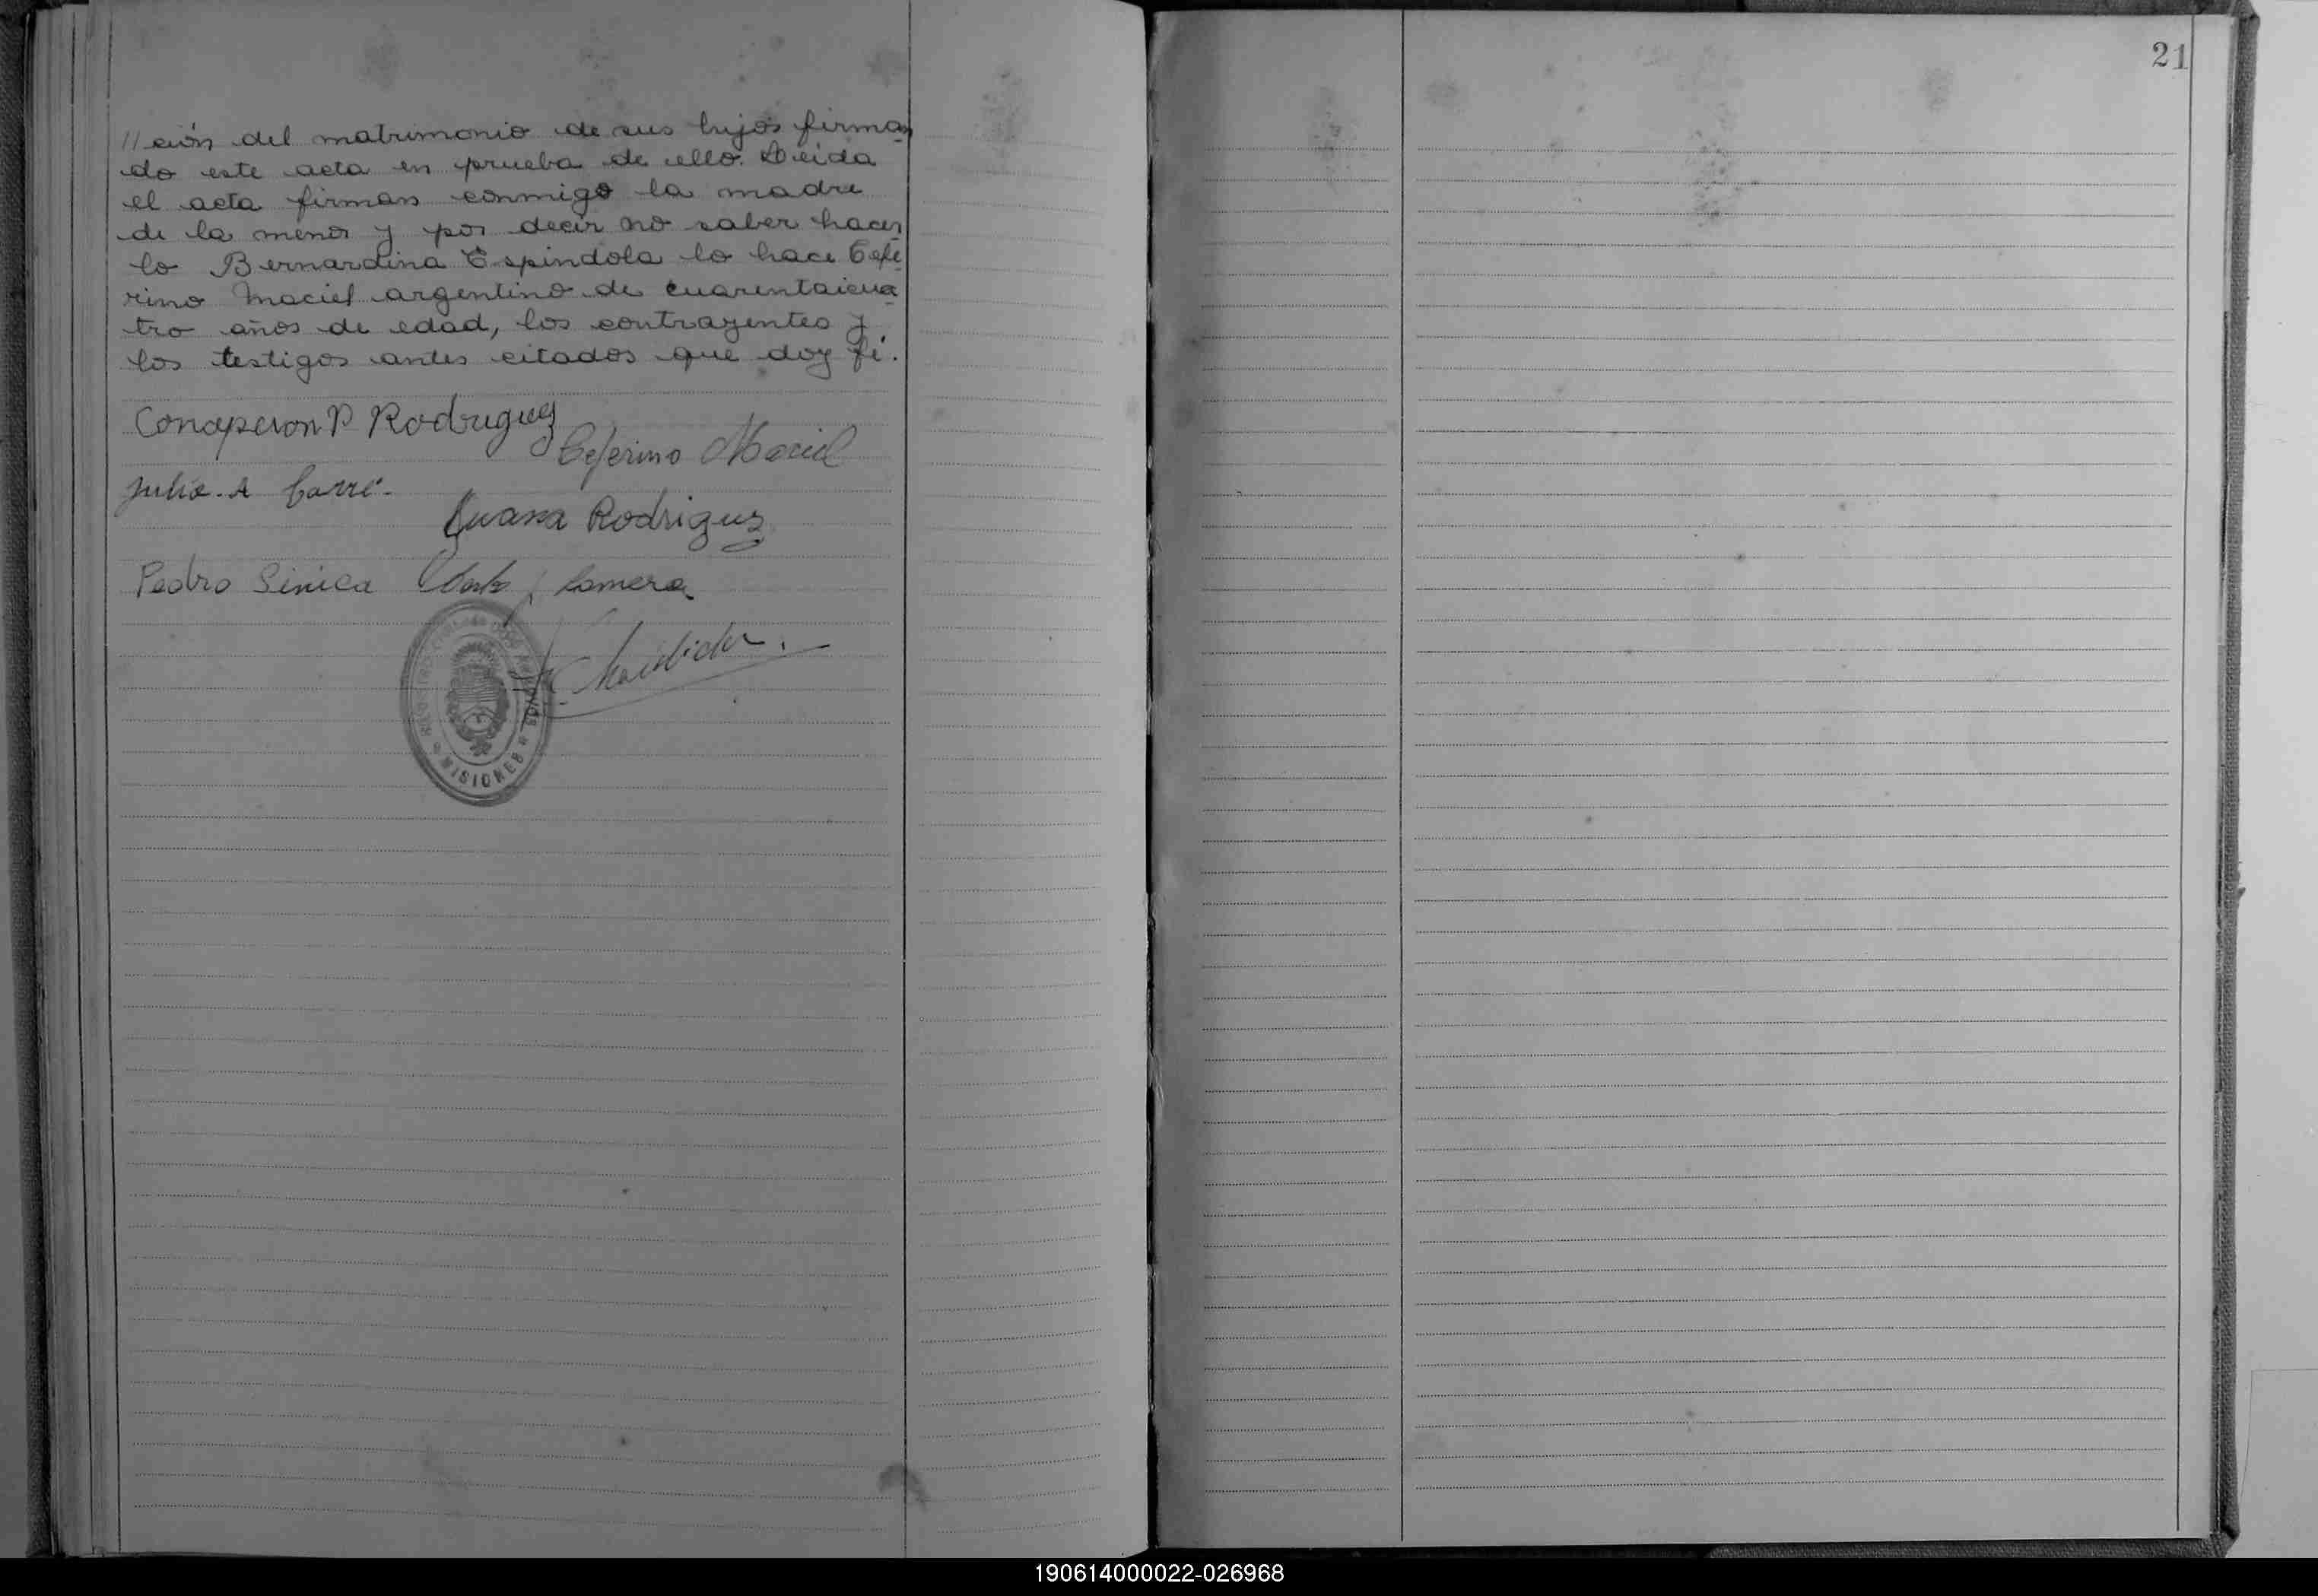 //ción del matrimonio de sus hijos firman
do este acta en prueba de ello. Leida
el acta firman conmigo la madre
de la menor y por decir no saber hacer
lo Bernardina Espindola lo hace Cefe
rino Maciel argentino de cuarentaicua
tro años de edad, los contrayentes y
los testigos antes citados que doy fé.
Concepcion P Rodriguez
Ceferino Maciel
Julio. A Carré.
Juana Rodriguez
Pedro Sinica
MISIONES
21
190614000022-026968